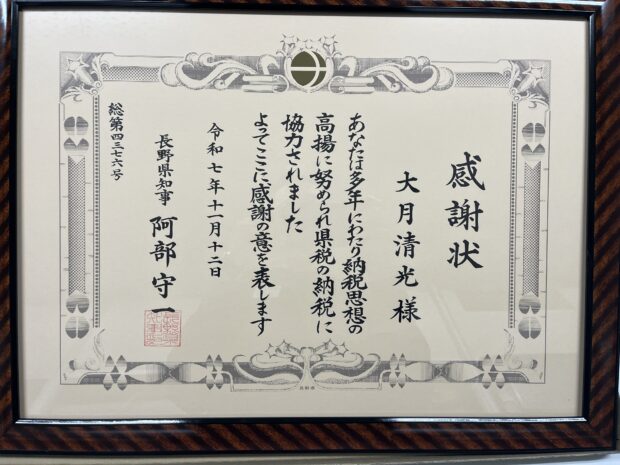 感謝状
大月清光様
あなたは多年にわたり納税思想の
高揚に努められ県税の納税に
協力されました
よってここに感謝の意を表します
令和七年十一月十二日
長野県知事 阿部守一
総第四三七六号